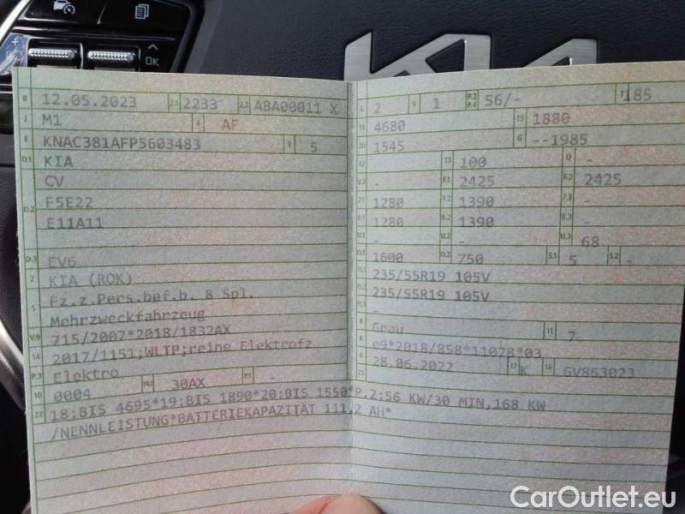 OK
KIA
B 12.05.2023 2.1 2233 2.2 ABA00011 X
J M1 4 AF
E KNAC381AFP5603483 3 5
D.1 KIA
CV
D.2 F5E22
E11A11
D.3 EV6
2 KIA (ROK)
5 Fz.z.Pers.bef.b. 8 Spl.
Mehrzweckfahrzeug
V.9 715/2007*2018/1832AX
14 2017/1151;WLTP;reine Elektrofz
P.3 Elektro
10 0004 14.1 30AX P.1 -
22 18:BIS 4695*19:BIS 1890*20:BIS 1550*P.2:56 KW/30 MIN,168 KW
/NENNLEISTUNG*BATTERIEKAPAZITÄT 111,2 AH*
L 2 9 1 P.2 P.4 56/- T 185
18 4680 19 1880
20 1545 G --1985
12 - 13 100 Q -
V.7 - F.1 2425 F.2 2425
7.1 1280 7.2 1390 7.3 -
8.1 1280 8.2 1390 8.3 -
U.1 - U.2 - U.3 68
O.1 1600 O.2 750 S.1 5 S.2 -
15.1 235/55R19 105V
15.2 235/55R19 105V
15.3 -
R Grau 11 7
K e9*2018/858*11078*03
6 28.06.2022 17 K 16 GV863023
21
CarOutlet.eu